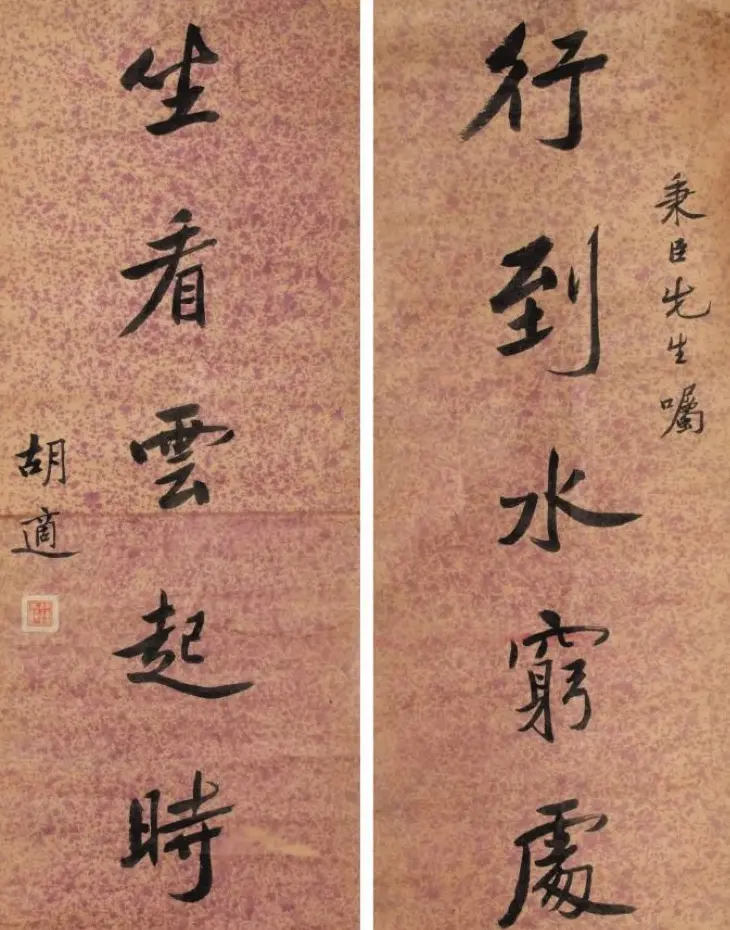 秉臣先生嘱
行到水窮處
坐看雲起時
胡適